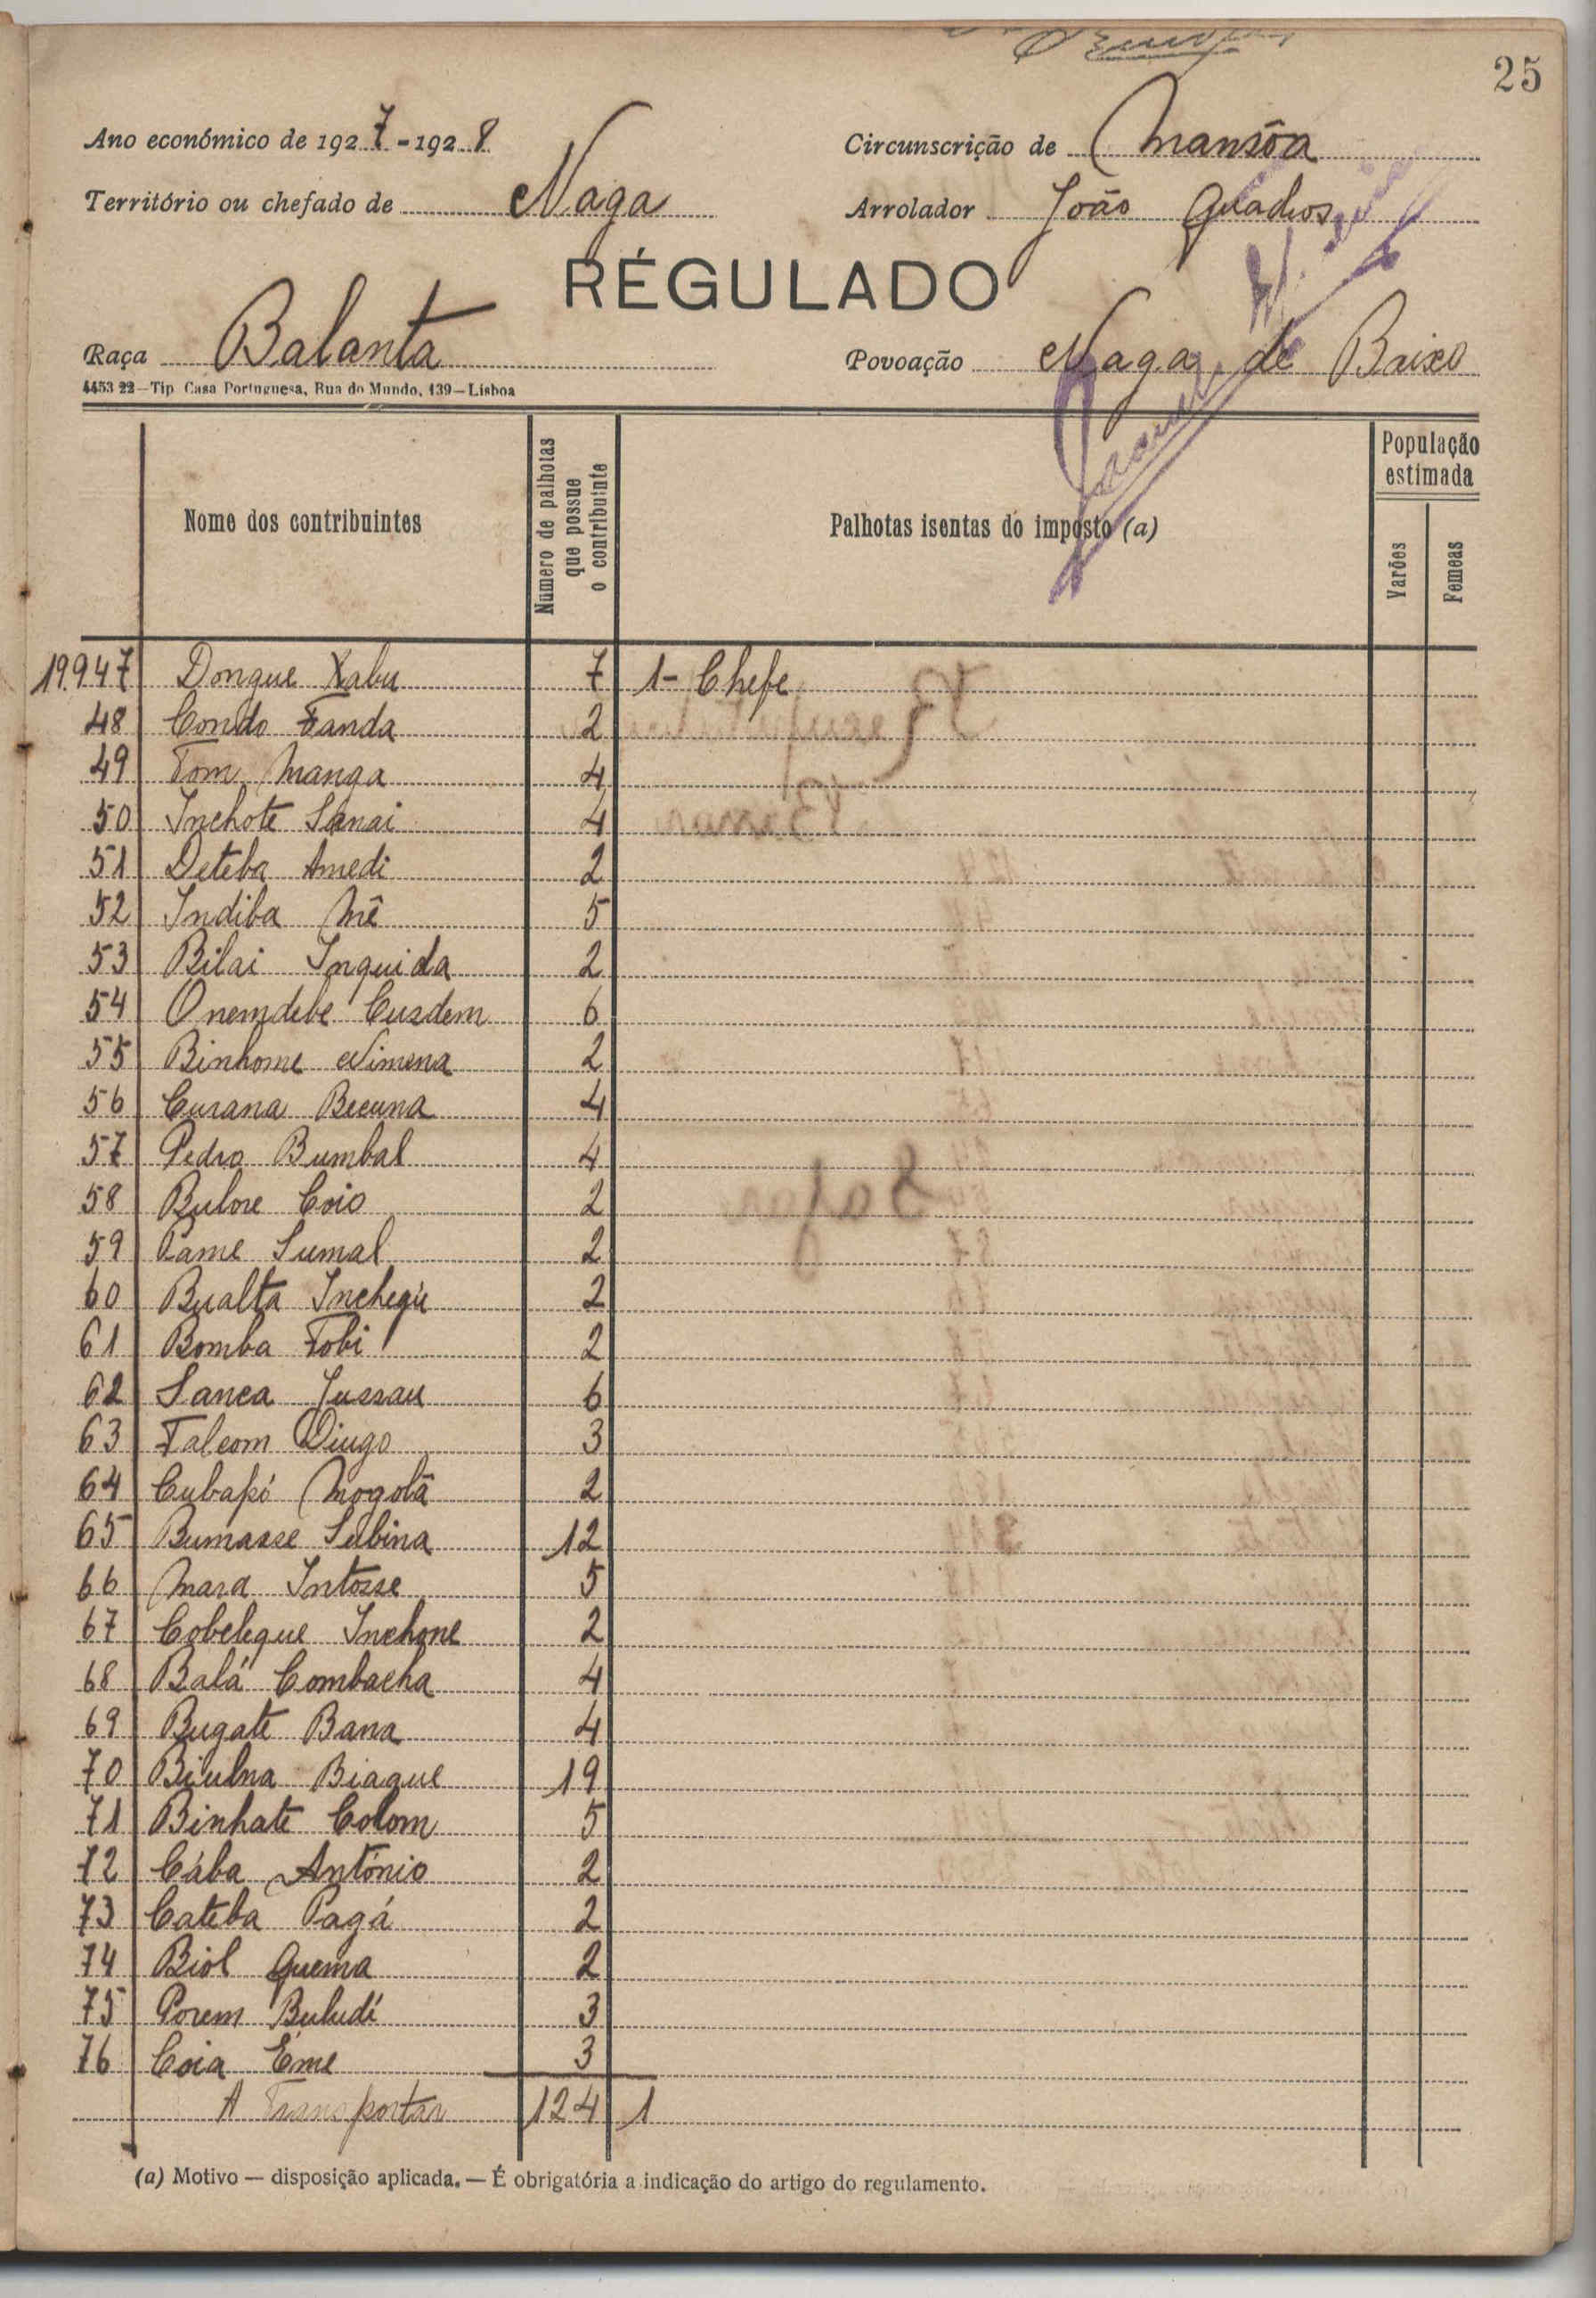 25
Ano económico de 1927-1928
Circunscrição de Mansôa
Território ou chefado de Naga
Arrolador João Quadros
RÉGULADO
Raça Balanta
Povoação Naga de Baixo
4453 22—Tip. Casa Portuguesa, Rua do Mundo, 139—Lisboa
Nome dos contribuintes
Número de palhotas que possue o contribuinte
Palhotas isentas do imposto (a)
População estimada
Varões
Femeas
19947 Dongue Xabu 7 1- Chefe
48 Condo Fanda 2
49 Tom Manga 4
50 Inchote Sanai 4
51 Deteba Amedi 2
52 Indiba Mê 5
53 Bilai Inquida 2
54 Onemdebe Cusdem 6
55 Binhome Nimena 2
56 Curana Becuna 4
57 Pedro Bumbal 4
58 Bulore Coio 2
59 Pame Sumal 2
60 Bualta Inchegù 2
61 Bomba Tobi 2
62 Sanca Jussau 6
63 Falcom Diugo 3
64 Cubapó Mogolã 2
65 Bumasse Sabina 12
66 Mara Intosse 5
67 Cobelegue Inchone 2
68 Balá Combacha 4
69 Bugate Bana 4
70 Biulna Biague 19
71 Binhate Colom 5
72 Cába António 2
73 Cateba Pagá 2
74 Biol Quema 2
75 Porem Buludí 3
76 Coia Éme 3
A Transportar 124 1
(a) Motivo — disposição aplicada. — É obrigatória a indicação do artigo do regulamento.